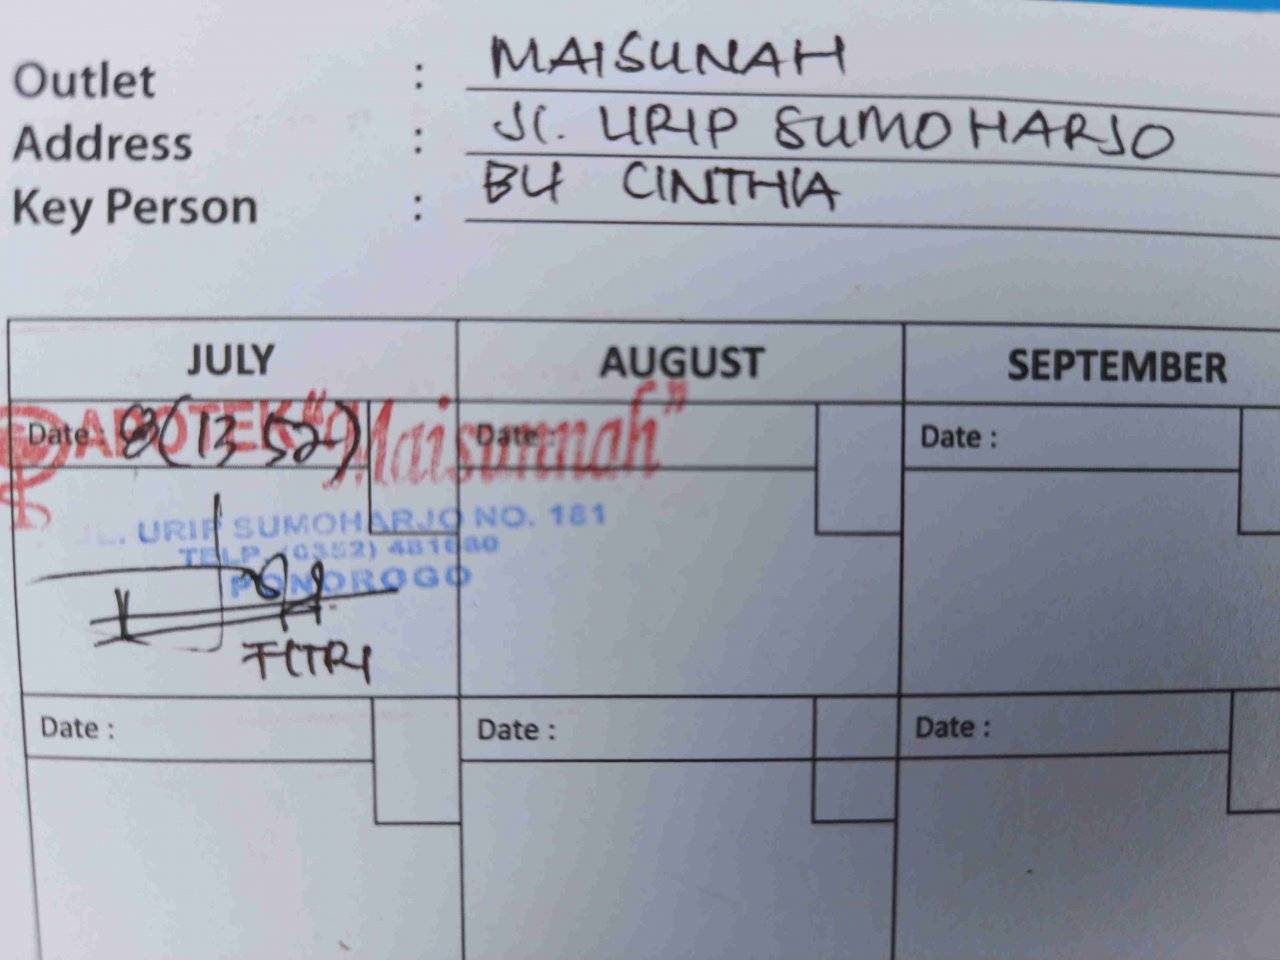 Outlet : MAISUNAH
Address : Jl. URIP SUMOHARJO
Key Person : BU CINTHIA
JULY AUGUST SEPTEMBER
Date : 8 (13 52) Date : Date :
APOTEK "Maisunnah"
JL. URIP SUMOHARJO NO. 181
TELP. (0352) 481680
PONOROGO
FITRI
Date : Date : Date :